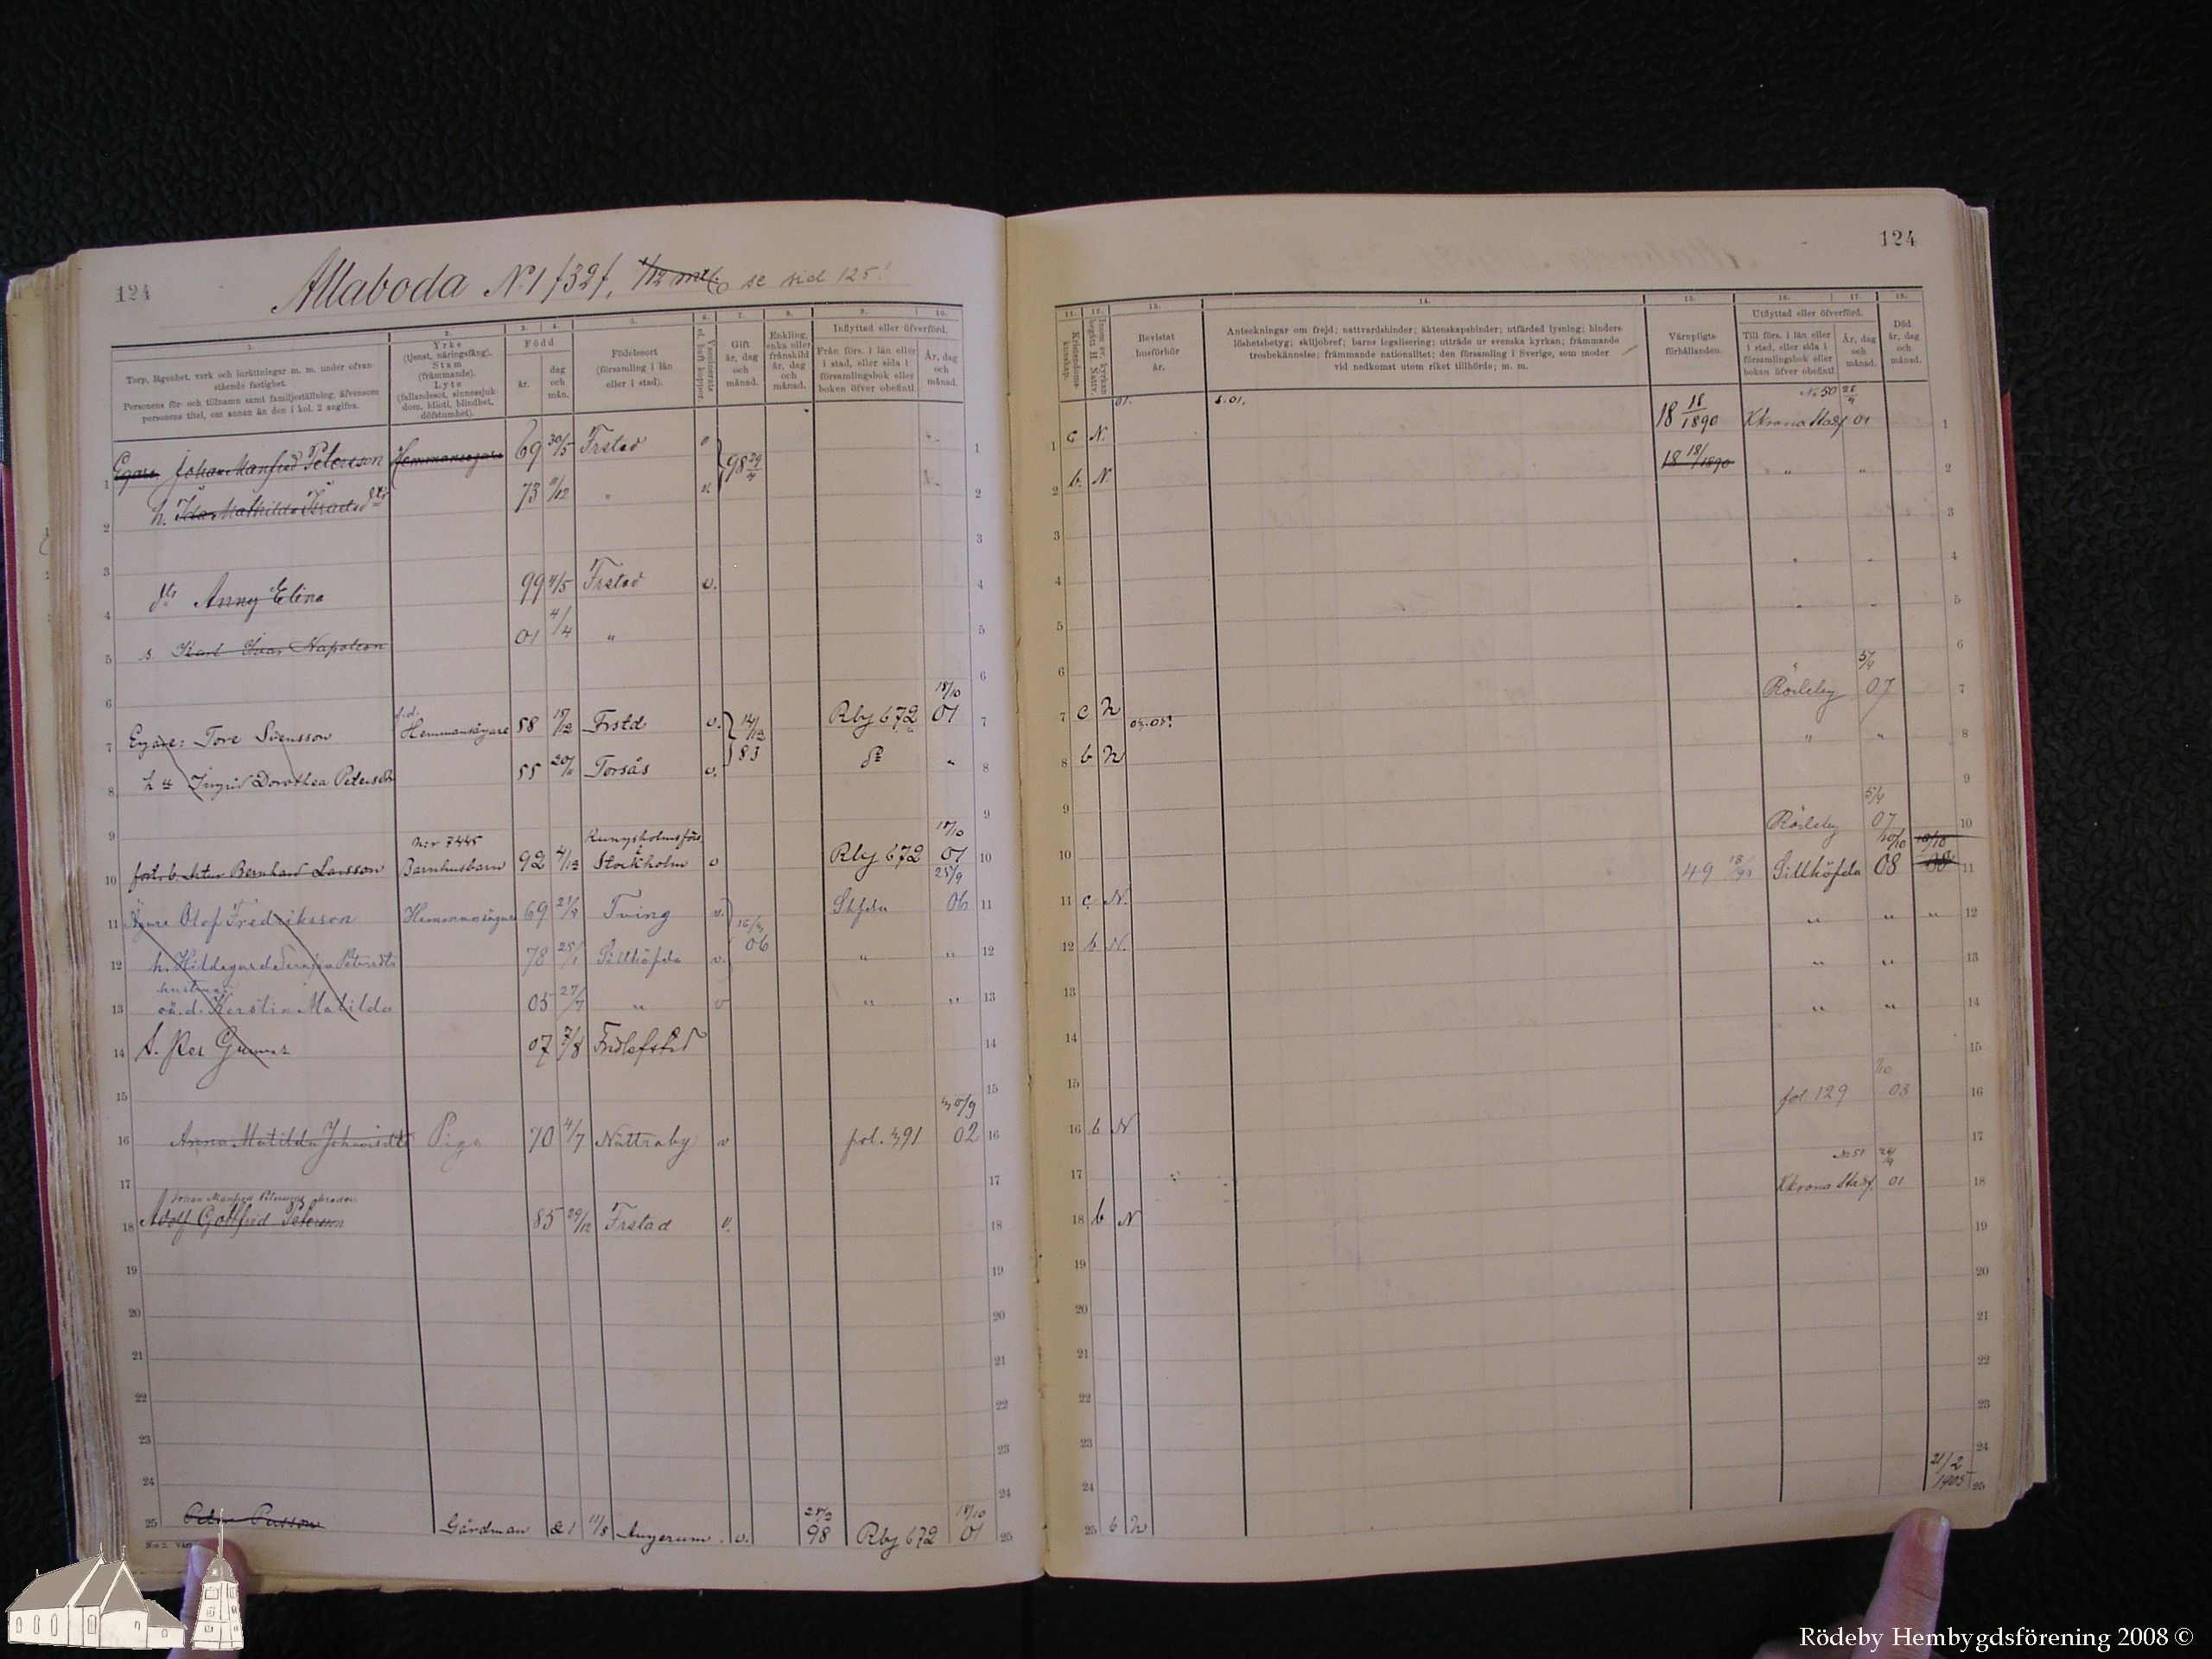 124
Allaboda N:1 /32/, 1/12 mtl se sid 125!
1. 2. 3. 4. 5. 6. 7. 8. 9. 10.
Torp, lägenhet, verk och inrättningar m. m. under ofvanstående fastighet.
Personens för- och tillnamn samt familjeställning, äfvensom personens titel, om annan än den i kol. 2 angifna.
Yrke (tjenst, näringsfång). Stam (främmande). Lyte (fallandesot, sinnessjukdom, idioti, blindhet, döfstumhet).
Född
år.
dag och mån.
Födelseort (församling i län eller i stad).
Vaccinerats el. haft koppor.
Gift år, dag och månad.
Enkling, enka eller frånskild år, dag och månad.
Inflyttad eller öfverförd.
Från förs. i län eller i stad, eller sida i församlingsbok eller boken öfver obefintl.
År, dag och månad.
1 Egare Johan Manfred Peterson Hemmansegare 69 30/5 Frstad v 98 29/4 1
2 h. Ida Mathilda Israelsdtr 73 11/12 " v. 2
3 3
4 dtr Anny Elina 99 4/5 Frstad v. 4
5 s. Karl Ivar Napoleon 01 4/4 " 5
6 6
7 Egare: Tore Svensson f.d. Hemmansägare 58 18/12 Frstd v. 83 Rby 672 18/10 01 7
8 h u Ingrid Dorothea Petersdtr 55 Torsås v. do " 8
9 9
10 Bernhard Larsson N:r 7445 Barnhusbarn 92 Kungsholms förs. Stockholm v Rby 672 18/10 01 10
11 Ägare Olof Fredriksson Hemmansägare 69 21/8 Tving v. 06 25/9 06 11
12 h. Hildegard Serafia Petersdtr 78 25/1 Sillhöfda v. " " 12
13 hustruns oä. d. Kerstin Matilda 05 27/7 " v " " 13
14 S. Per Gunnar 07 7/8 Fridlefstad 14
15 15
16 Anna Matilda Johansdtr Piga 70 4/7 Nättraby v fol. 391 30/9 02 16
17 17
Johan Manfred Petersons broder
18 Adolf Gottfrid Peterson 85 29/12 Frstad v. 18
19 19
20 20
21 21
22 22
23 23
24 24
25 Peter Persson Gårdman 11/8 Augerum. v. 98 Rby 672 18/10 01 25
124
11. 12. 13. 14. 15. 16. 17. 18.
Kristendomskunskap.
Inom sv. kyrkan begått H. Nattv.
Bevistat husförhör år.
Anteckningar om frejd; nattvardshinder; äktenskapshinder; utfärdad lysning; hinderslöshetsbetyg; skiljobref; barns legalisering; utträde ur svenska kyrkan; främmande trosbekännelse; främmande nationalitet; den församling i Sverige, som moder vid nedkomst utom riket tillhörde; m. m.
Värnpliktsförhållanden.
Utflyttad eller öfverförd.
Till förs. i län eller i stad, eller sida i församlingsbok eller boken öfver obefintl.
År, dag och månad.
Död år, dag och månad.
1 c N. 01. 18 18/1890 No 50 Kkrona Stadsf 26/9 01 1
2 b. N. 18 18/1890 " " 2
3 3
4 " " 4
5 " " 5
6 6
7 c N Rödeby 5/4 07 7
8 b N " " 8
9 9
10 Rödeby 5/4 07 10
11 c N. 49 Sillhöfda 20/10 08 11
12 b N. " " " 12
13 " " 13
14 " " 14
15 15
16 b N fol 129 1/10 03 16
17 17
18 b N No 51 Kkrona Stadsf. 26/9 01 18
19 19
20 20
21 21
22 22
23 23
24 24
25 b N 21/2 1905 25
Rödeby Hembygdsförening 2008 ©